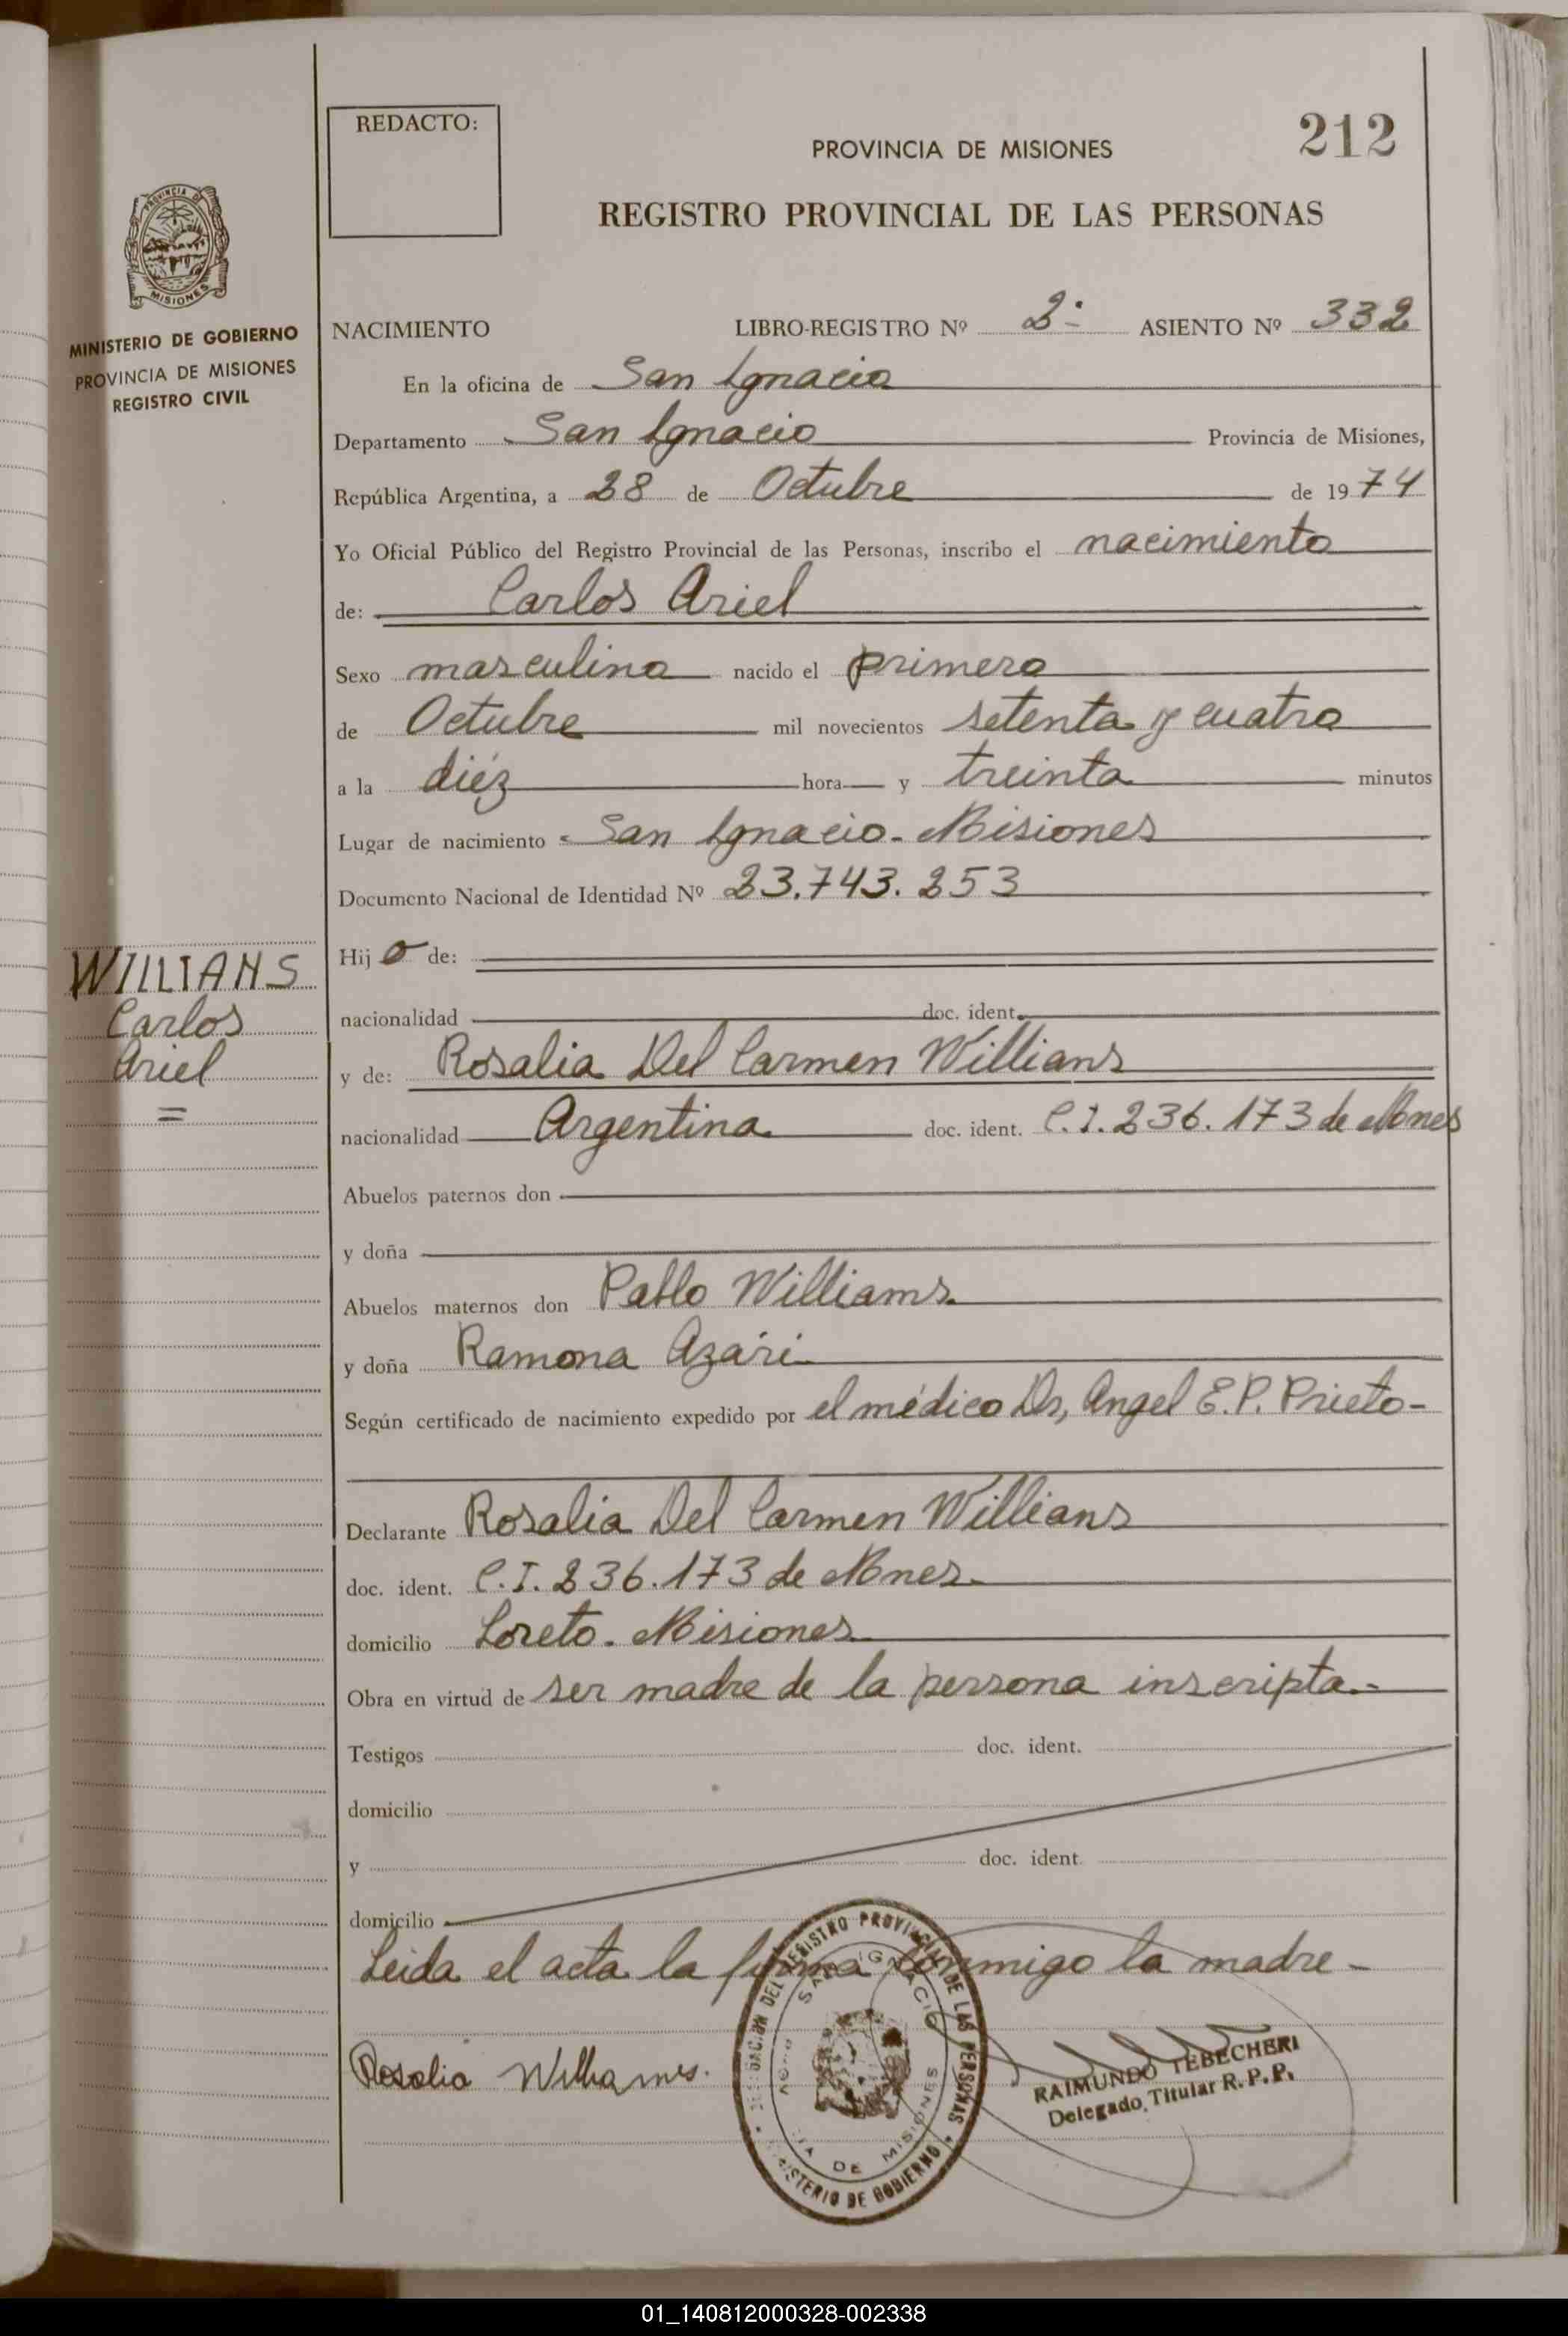 REDACTO:
212
PROVINCIA DE MISIONES
REGISTRO PROVINCIAL DE LAS PERSONAS
MISIONES
MINISTERIO DE GOBIERNO
PROVINCIA DE MISIONES
REGISTRO CIVIL
NACIMIENTO LIBRO-REGISTRO Nº 2º ASIENTO Nº 332
En la oficina de San Ignacio
Departamento San Ignacio Provincia de Misiones,
República Argentina, a 28 de Octubre de 1974
Yo Oficial Público del Registro Provincial de las Personas, inscribo el nacimiento
de: Carlos Ariel
Sexo masculino nacido el primero
de Octubre mil novecientos setenta y cuatro
a la diéz hora y treinta minutos
Lugar de nacimiento San Ignacio - Misiones
Documento Nacional de Identidad Nº 23.743.253
Hijo de:
nacionalidad doc. ident.
WILLIANS
Carlos
Ariel
y de: Rosalia Del Carmen Willians
nacionalidad Argentina doc. ident. C.I. 236.173 de Mones
Abuelos paternos don
y doña
Abuelos maternos don Pablo Williams
y doña Ramona Azari
Según certificado de nacimiento expedido por el médico Dr, Angel E.P. Prieto-
Declarante Rosalia Del Carmen Willians
doc. ident. C.I. 236.173 de Mnes.
domicilio Loreto. Misiones
Obra en virtud de ser madre de la persona inscripta.-
Testigos doc. ident.
domicilio
y doc. ident.
domicilio
Leida el acta la firma conmigo la madre -
Rosalia Williams.
RAIMUNDO TEBECHERI
Delegado Titular R. P. P.
DELEGACION DEL REGISTRO PROVINCIAL DE LAS PERSONAS
SAN IGNACIO
DE MISIONES
MINISTERIO DE GOBIERNO
01_140812000328-002338